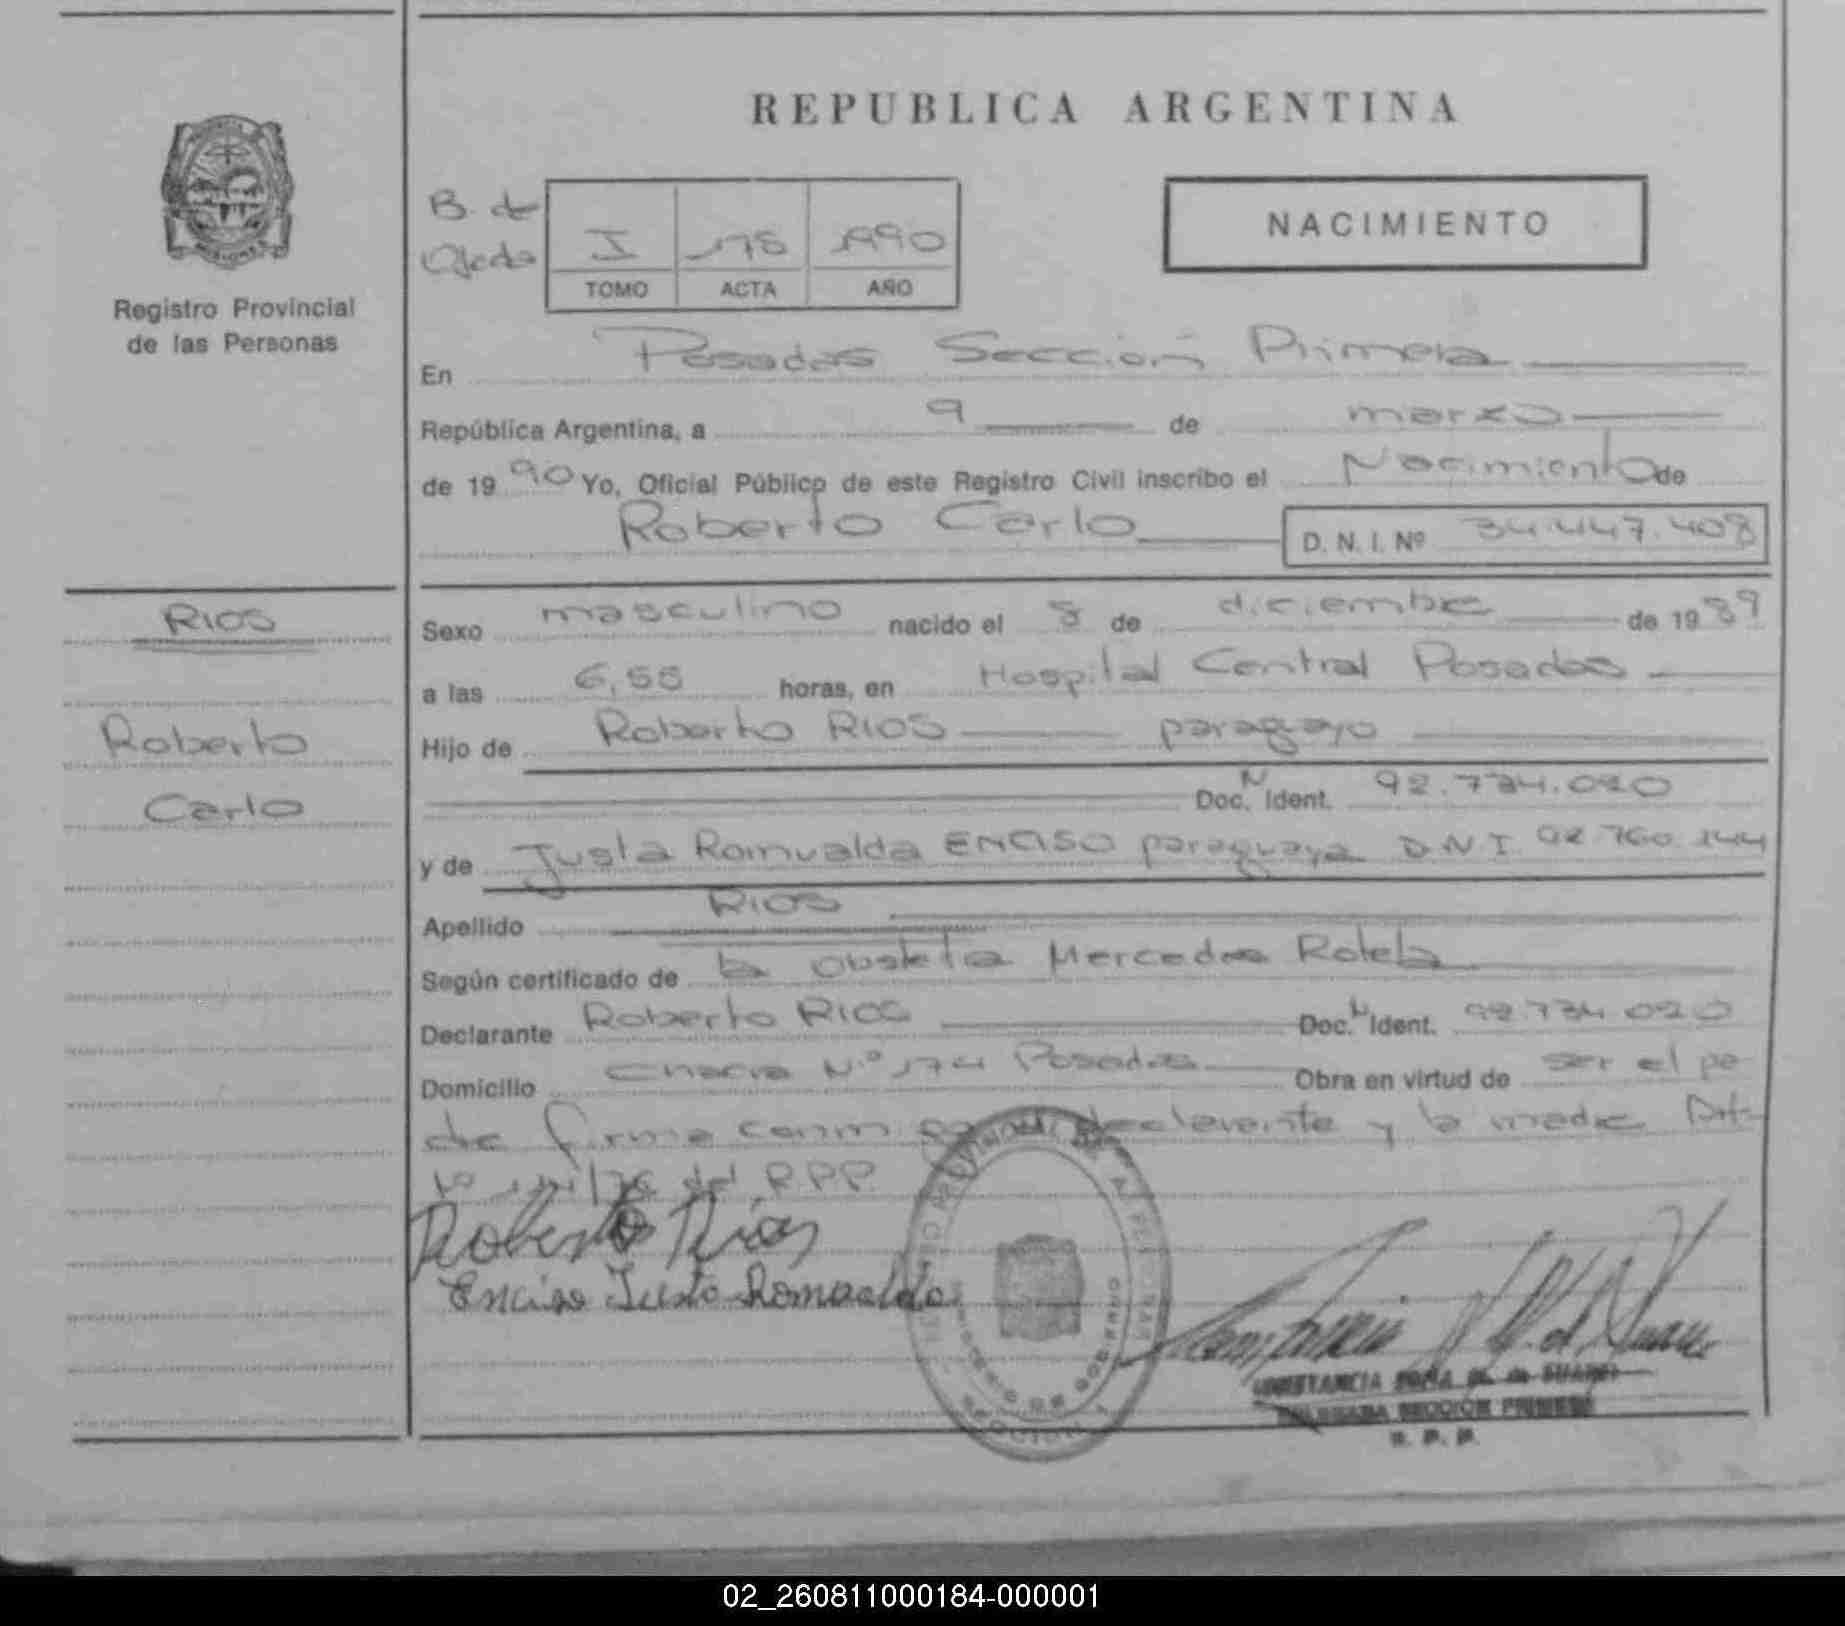 REPUBLICA ARGENTINA
NACIMIENTO
B. de
Ojeda
I 178 1990
TOMO ACTA AÑO
Registro Provincial
de las Personas
En Posadas Sección Primera
República Argentina, a 9 de marzo
de 1990 Yo, Oficial Público de este Registro Civil inscribo el Nacimiento de
Roberto Carlo D. N. I. Nº 34.447.408
RIOS
Roberto
Carlo
Sexo masculino nacido el 8 de diciembre de 1989
a las 6,55 horas, en Hospital Central Posadas
Hijo de Roberto RIOS paraguayo
Doc. N Ident. 92.734.020
y de Justa Romualda ENCISO paraguaya D.N.I. 92.760.144
Apellido RIOS
Según certificado de la obstetra Mercedes Rotela
Declarante Roberto RIOS Doc. N Ident. 92.734.020
Domicilio Chacra N.º 174 Posadas Obra en virtud de ser el pa
dre firma conmigo el declarante y la madre
del R.P.P.
Roberto Rios
Enciso Justa Romualda
REGISTRO PROVINCIAL DE LAS PERSONAS
MINISTERIO DE GOBIERNO
SECCION 1
CONSTANCIA SOFIA M. de SUAREZ
DELEGADA SECCION PRIMERA
R. P. P.
02_260811000184-000001